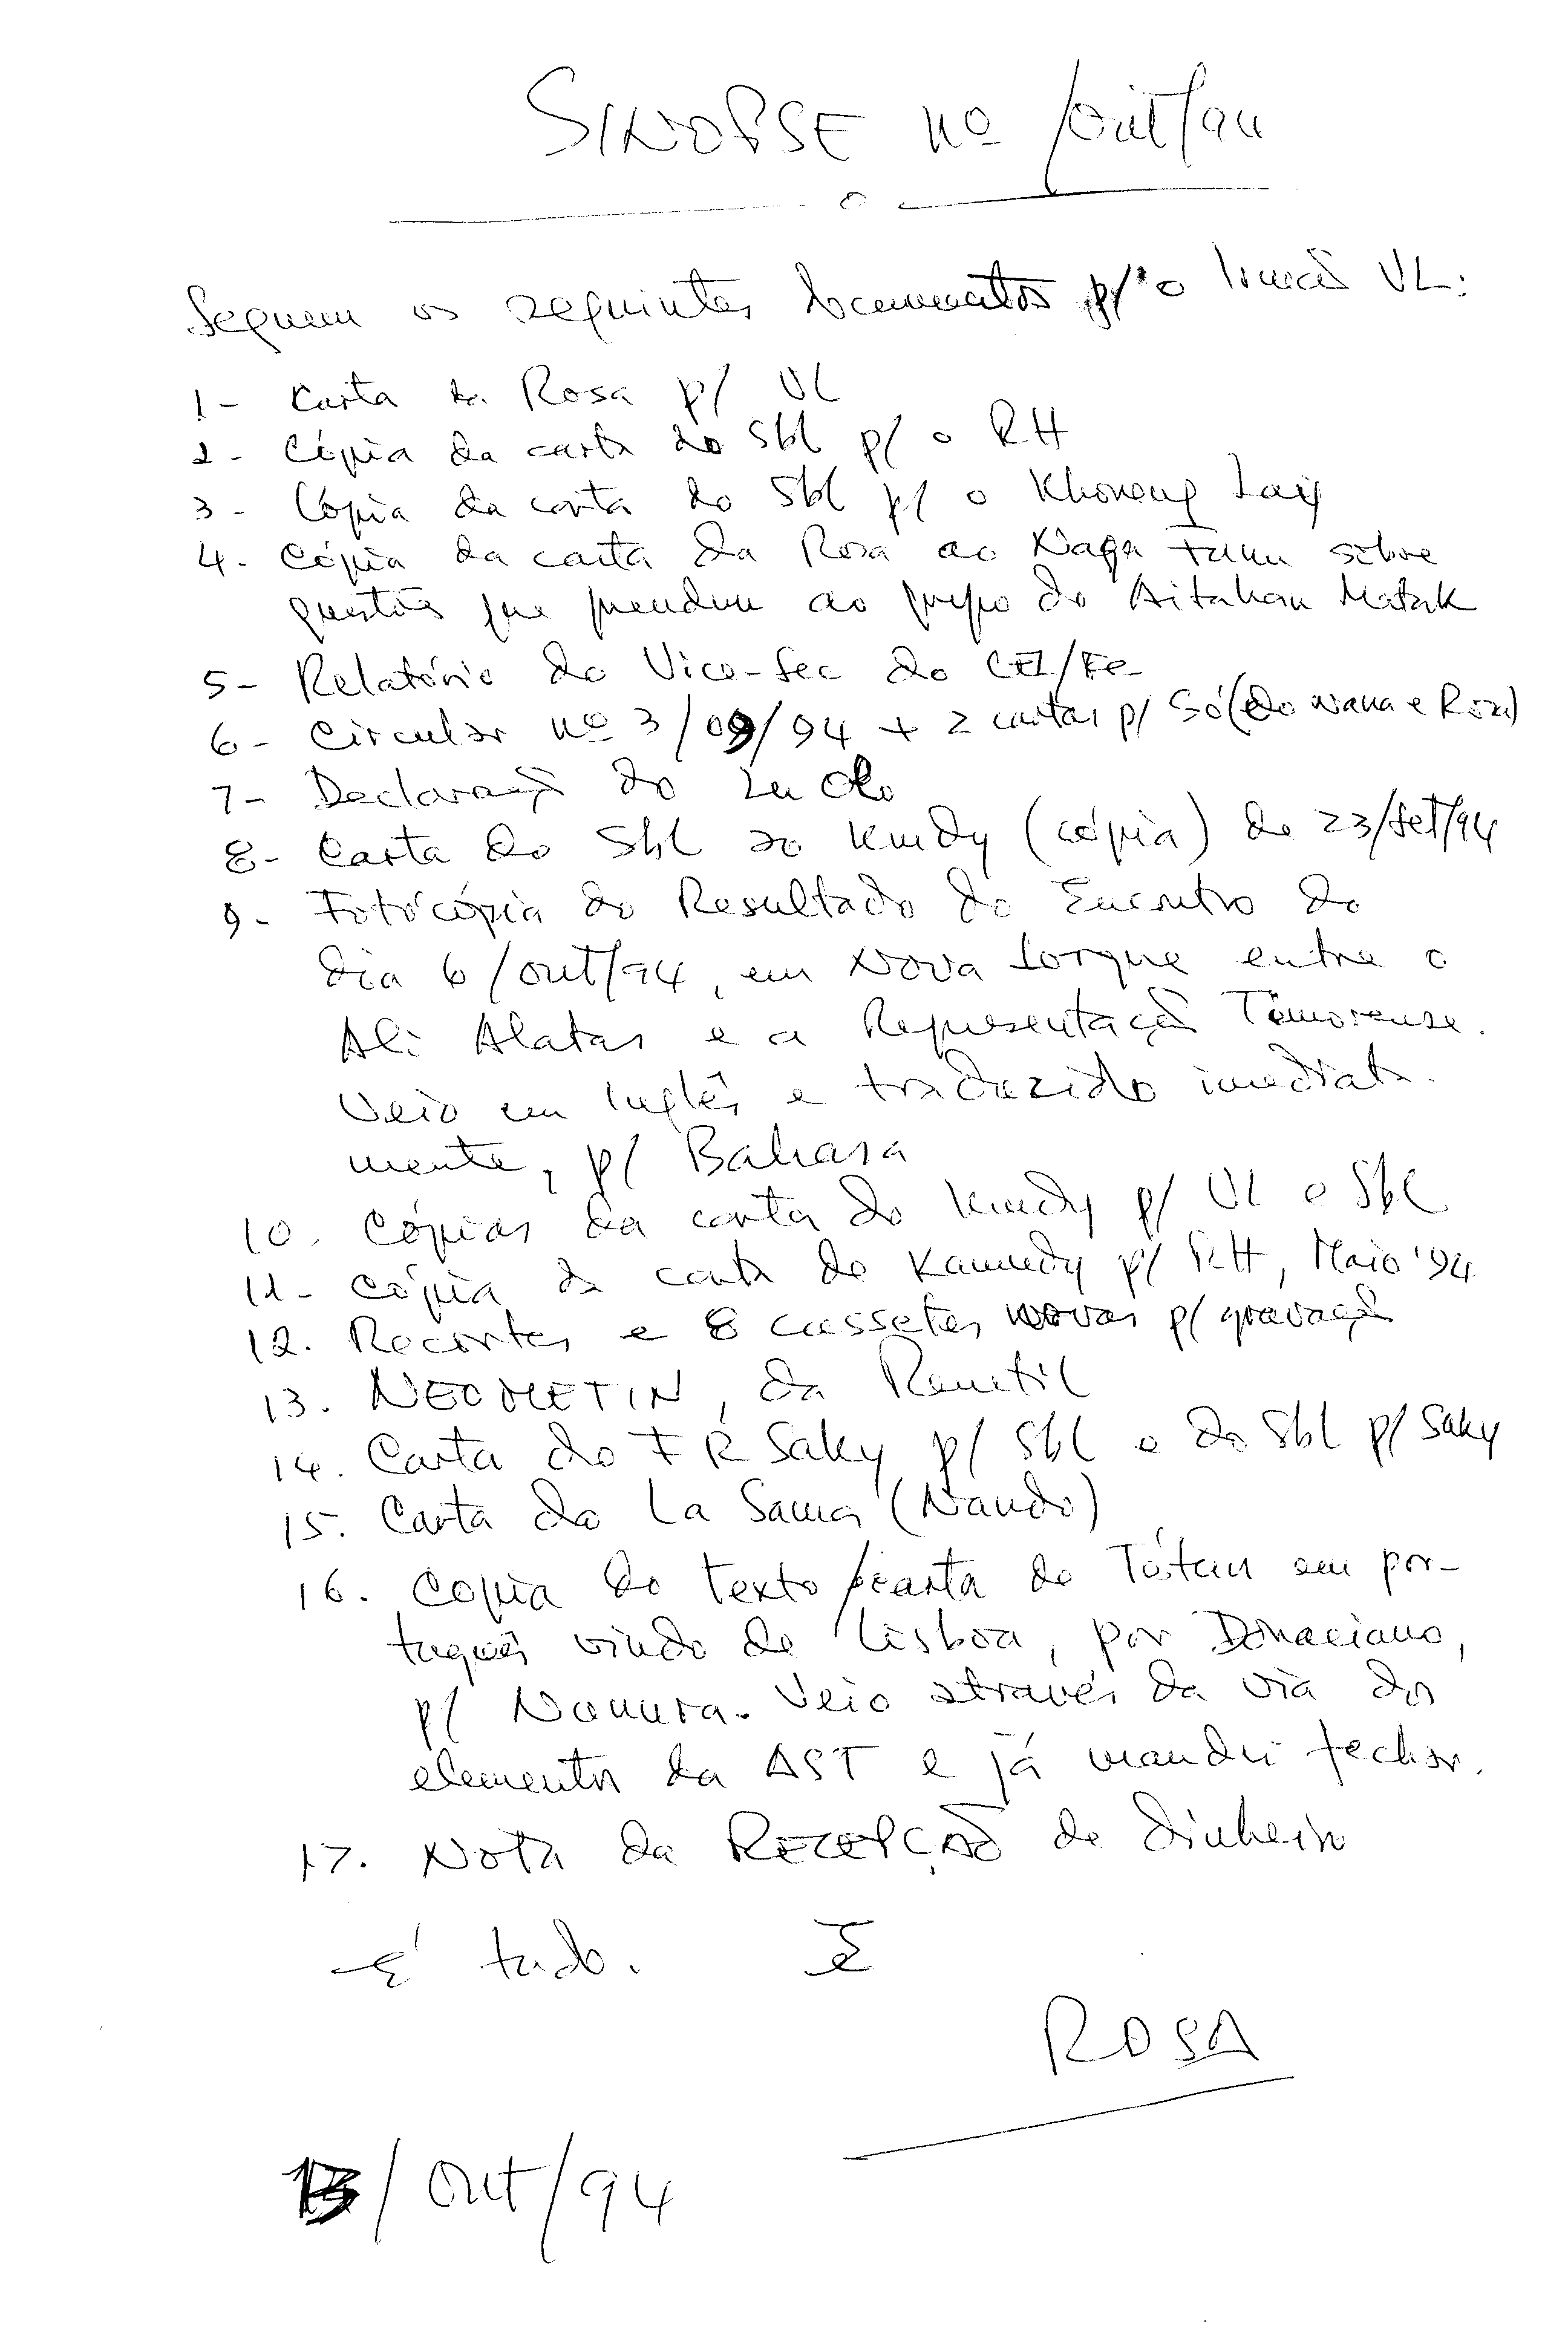 SINOPSE nº /out/94
Seguem os seguintes documentos p/ o Irmão VL:
1- Carta da Rosa p/ VL
2- Cópia da carta do Sbl p/ o RH
3- Cópia da carta do Sbl p/ o
4. Cópia da carta da Rosa ao Naga Funu sôbre
questões que prendem ao grupo do Aitahan Matak
5- Relatório do Vice-Sec do CE/FE
6- Circular nº 3/09/94 + 2 cartas p/ Só (do Nana e Rosa)
7- Declaração do
8- Carta do Sbl ao (cópia) de 23/Set/94
9- Fotocópia do Resultado do Encontro do
dia 6/out/94, em Nova Iorque entre o
Ali Alatas e a Representação Timorense.
Veio em Inglês e traduzido imediata-
mente, p/ Bahasa
10. Cópias da carta do p/ VL e Sbl
11- Cópia da carta do p/ RH, Maio '94
12. Recortes e 8 cassetes novas p/ gravação
13. NEOMETIN, da Renetil
14. Carta do FR Saky p/ Sbl e do Sbl p/ Saky
15. Carta do La Sama (Nando)
16. Copia do texto /carta de em por-
tuguês vindo de Lisboa, por Donaciano,
p/ Veio através da via dos
elementos da AST e já mandei fechar.
17. Nota da RECEPÇÃO de dinheiro
É tudo.
ROSA
13/out/94